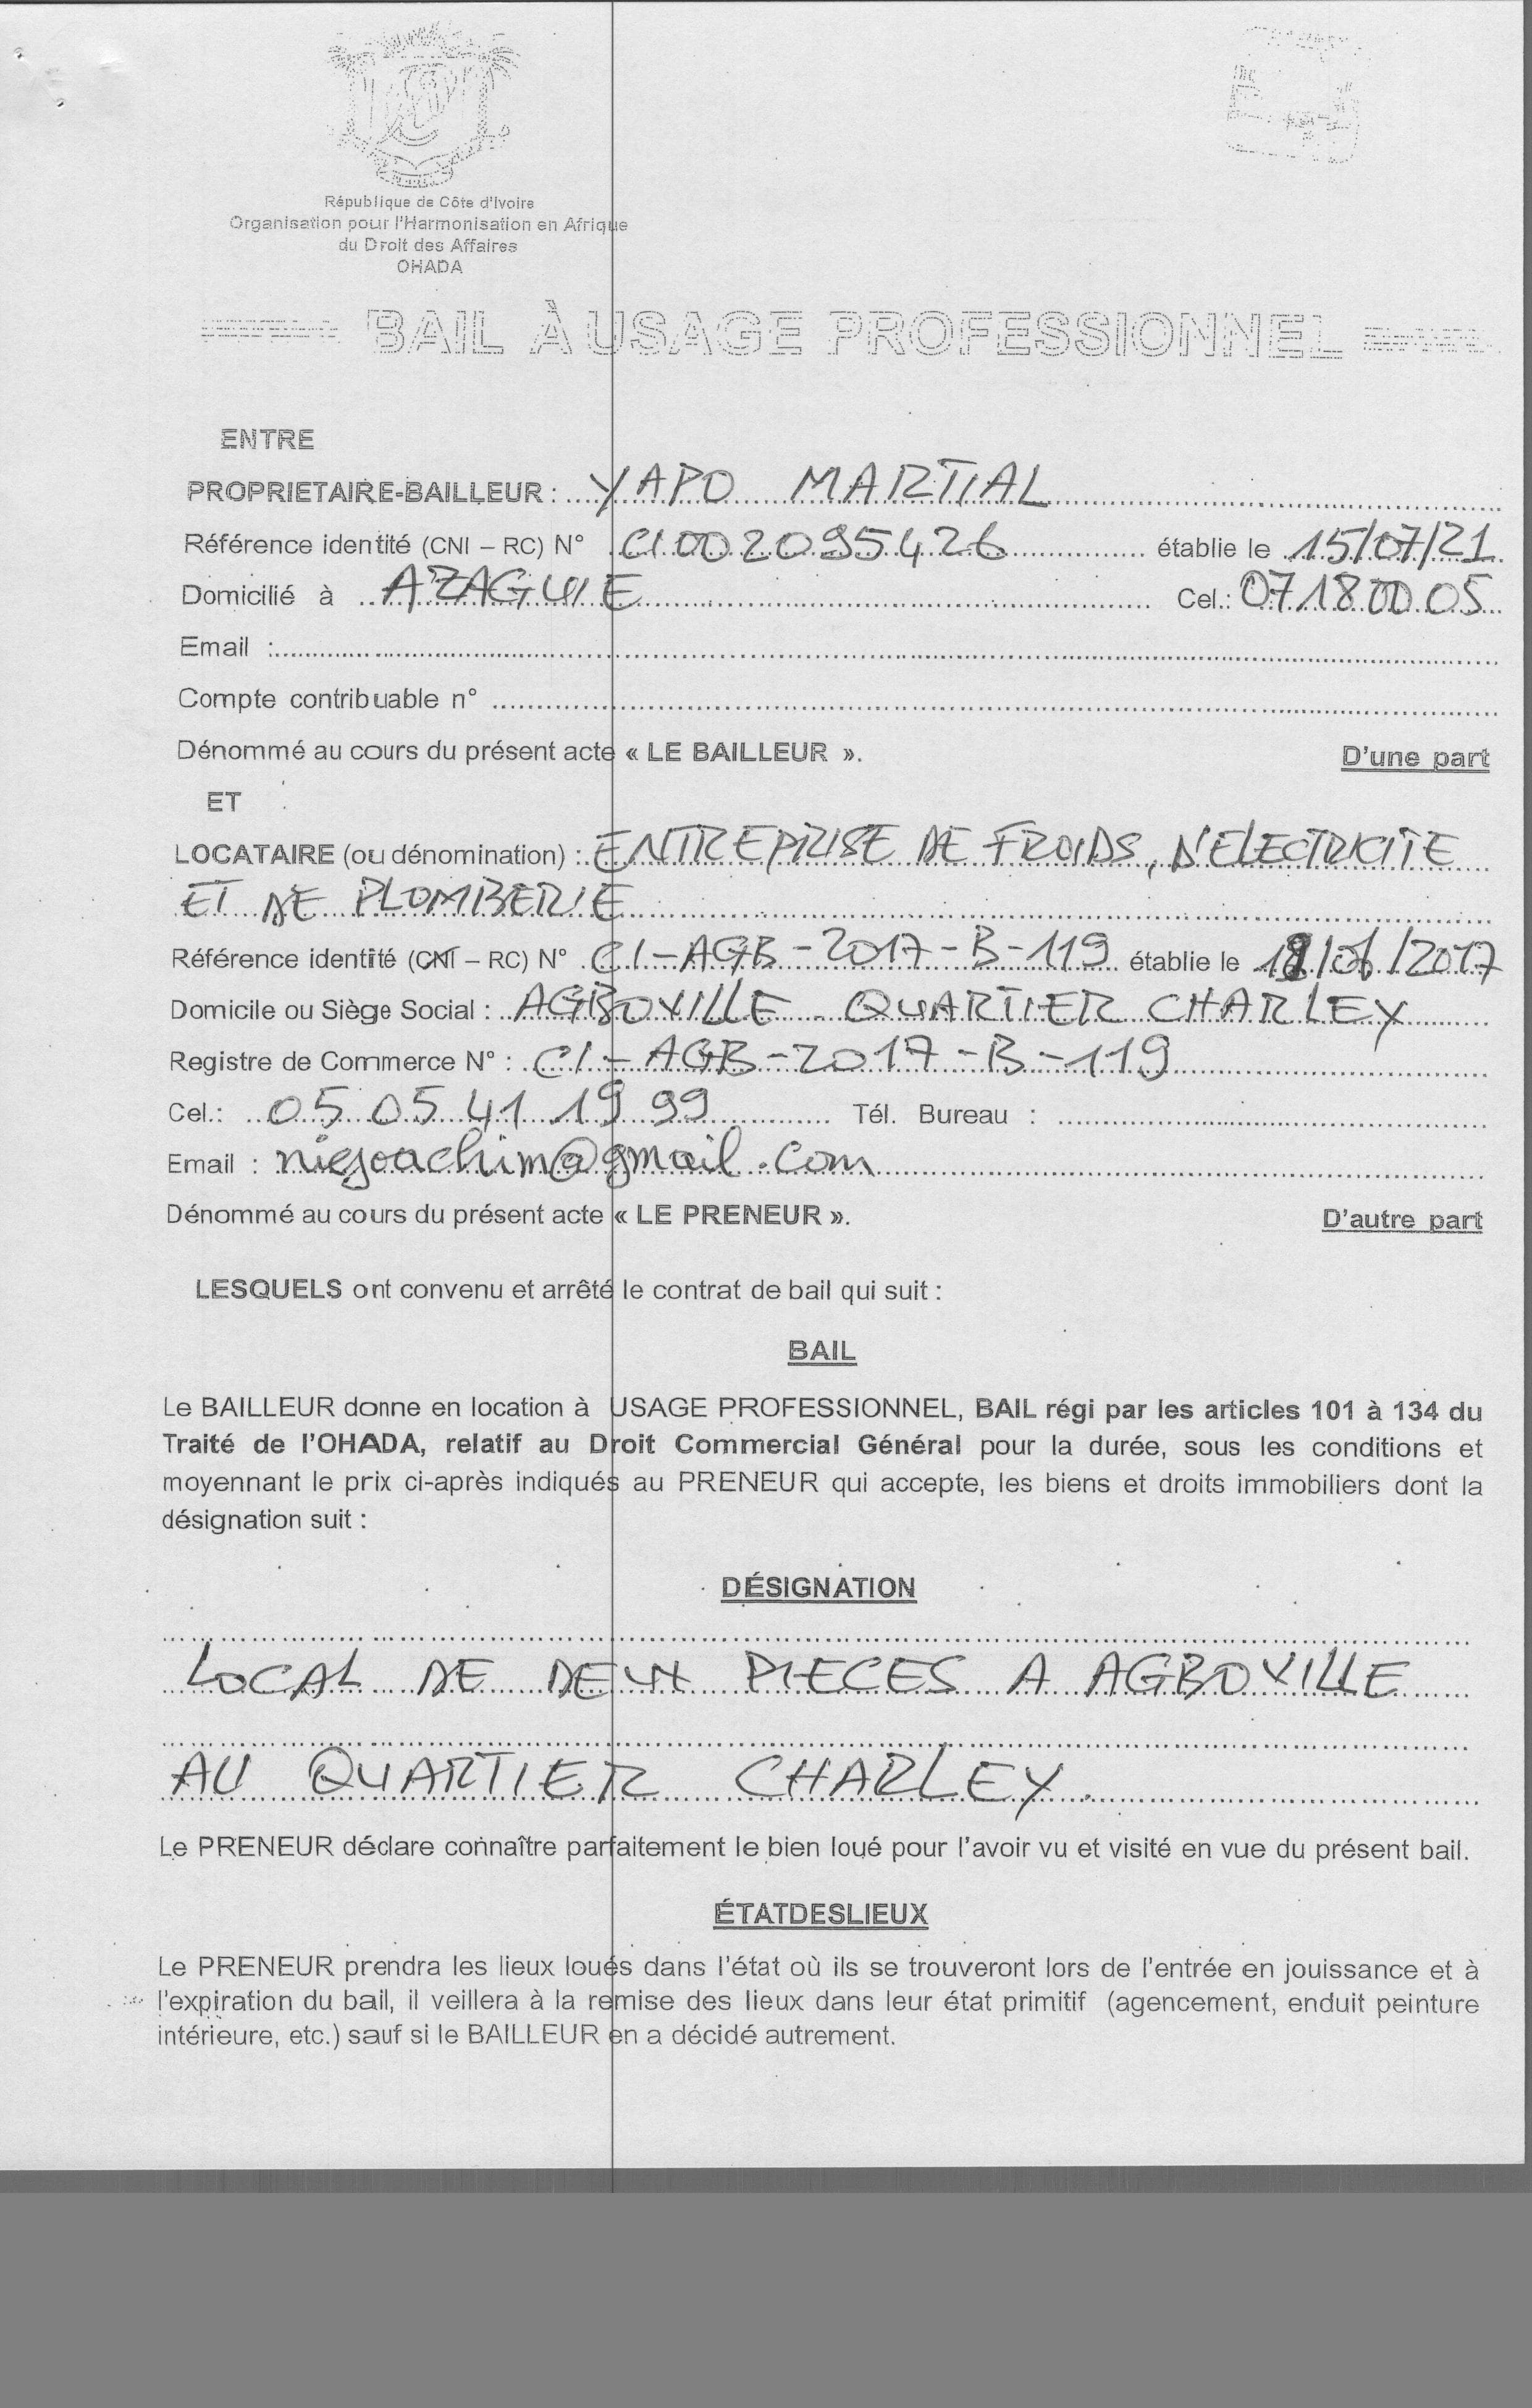 République de Côte d'Ivoire
Organisation pour l'Harmonisation en Afrique
du Droit des Affaires
OHADA
BAIL À USAGE PROFESSIONNEL
ENTRE
PROPRIETAIRE-BAILLEUR : YAPO MARTIAL
Référence identité (CNI – RC) N° CI002095426 établie le 15/07/21
Domicilié à AZAGUIE Cel.: 07 18 00 05
Email :
Compte contribuable n°
Dénommé au cours du présent acte « LE BAILLEUR ». D'une part
ET
LOCATAIRE (ou dénomination) : ENTREPRISE DE FROIDS, D'ELECTRICITE
ET DE PLOMBERIE
Référence identité (CNI – RC) N° CI-AGB-2017-B-119 établie le /2017
Domicile ou Siège Social : AGBOVILLE QUARTIER CHARLEY
Registre de Commerce N° : CI-AGB-2017-B-119
Cel.: 05 05 41 19 99 Tél. Bureau :
Email : niejoachim@gmail.com
Dénommé au cours du présent acte « LE PRENEUR ». D'autre part
LESQUELS ont convenu et arrêté le contrat de bail qui suit :
BAIL
Le BAILLEUR donne en location à USAGE PROFESSIONNEL, BAIL régi par les articles 101 à 134 du
Traité de l'OHADA, relatif au Droit Commercial Général pour la durée, sous les conditions et
moyennant le prix ci-après indiqués au PRENEUR qui accepte, les biens et droits immobiliers dont la
désignation suit :
DÉSIGNATION
LOCAL DE DEUX PIECES A AGBOVILLE
AU QUARTIER CHARLEY.
Le PRENEUR déclare connaître parfaitement le bien loué pour l'avoir vu et visité en vue du présent bail.
ÉTATDESLIEUX
Le PRENEUR prendra les lieux loués dans l'état où ils se trouveront lors de l'entrée en jouissance et à
l'expiration du bail, il veillera à la remise des lieux dans leur état primitif (agencement, enduit peinture
intérieure, etc.) sauf si le BAILLEUR en a décidé autrement.